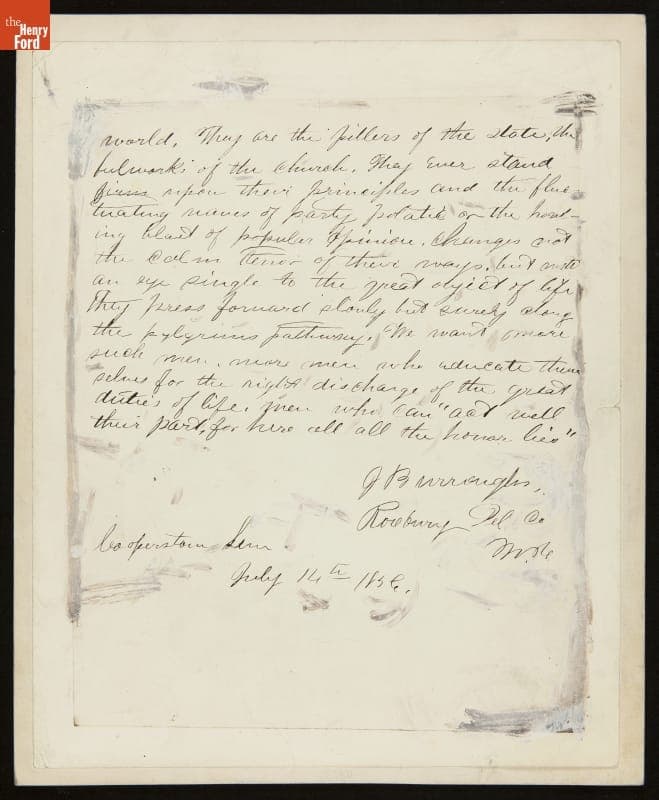 the
Henry
Ford
world. They are the pillers of the state, the
bulworks of the church. They ever stand
firm upon their principles and the fluc-
tuating views of party Polatic or the howl-
ing blast of popular opinion, changes not
the calm tenor of their ways. but with
an eye single to the great object of life
They press forward slowly but surely along
the pylgrims pathway. "We want more
such men. more men who educate them
selves for the right discharge of the great
duties of life. men who can "act well
their part, for here all all the honor lies"
J Burroughs,
Roxbury Del Co
Cooperstown Sem.
July 14th 1856.